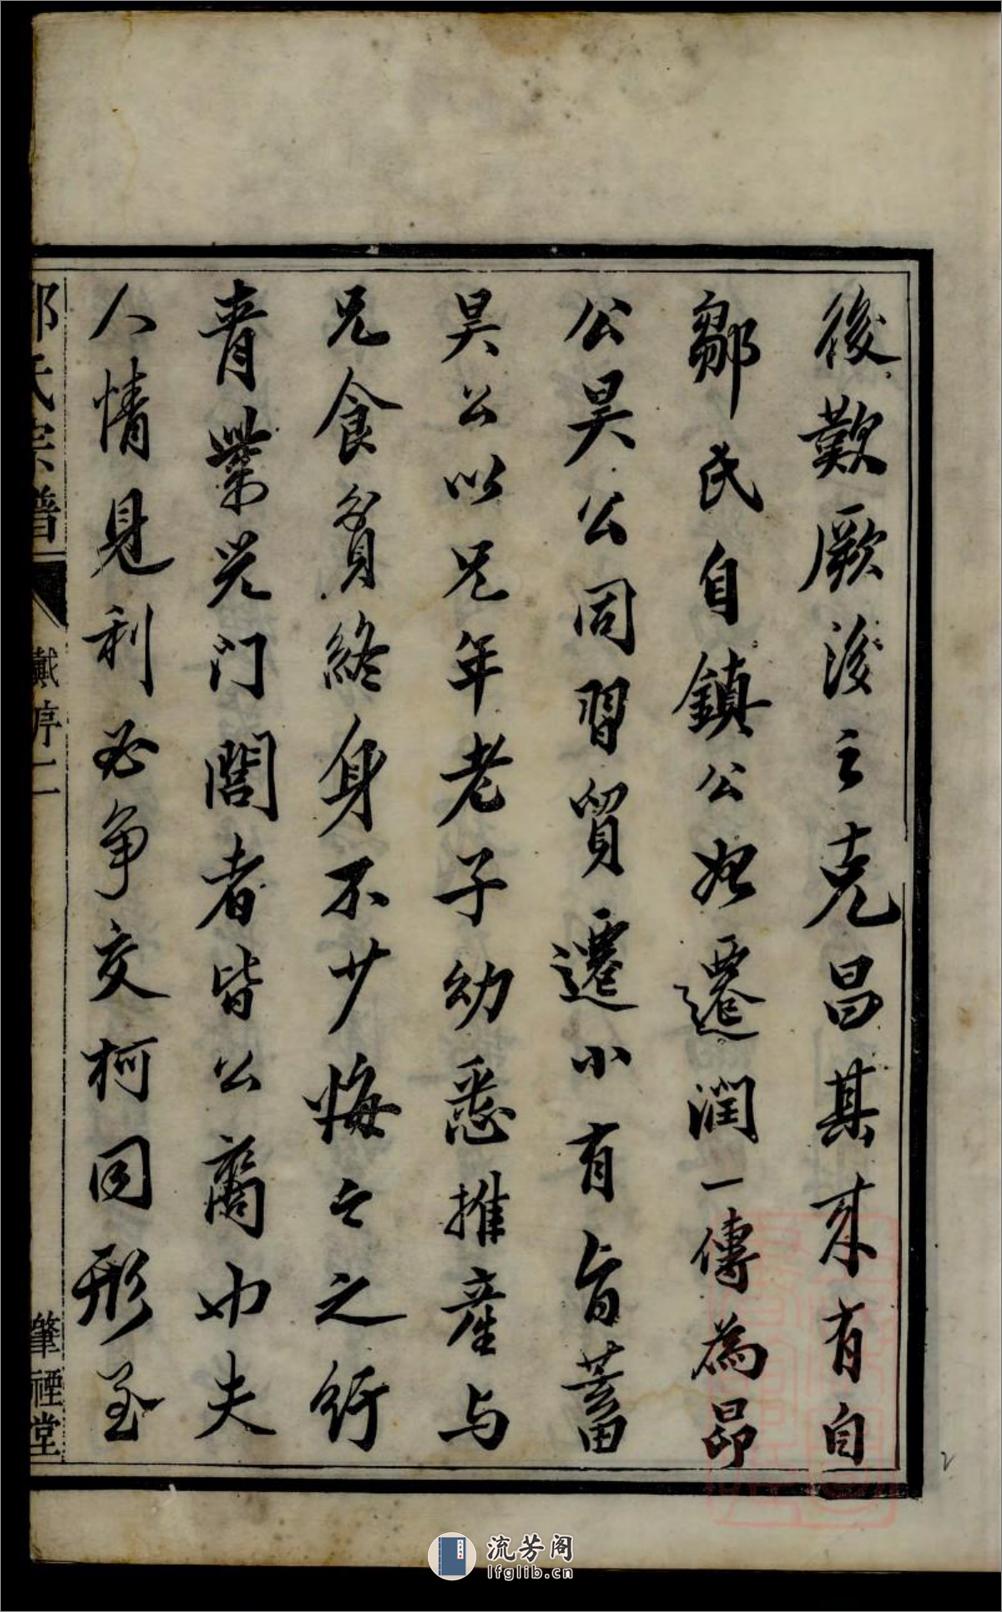 後歎厥後之克昌其來有自
鄒氏自鎮公始遷潤一傳為昂
公昊公同習貿遷小有旨蓄
昊公以兄年老子幼悉推産与
兄食貧終身不少悔云之行
青業光門閭者皆公裔也夫
人情見利必争交柯同形至
鄒氏宗譜
戴序 二
肇禋堂
流芳阁
lfglib.cn